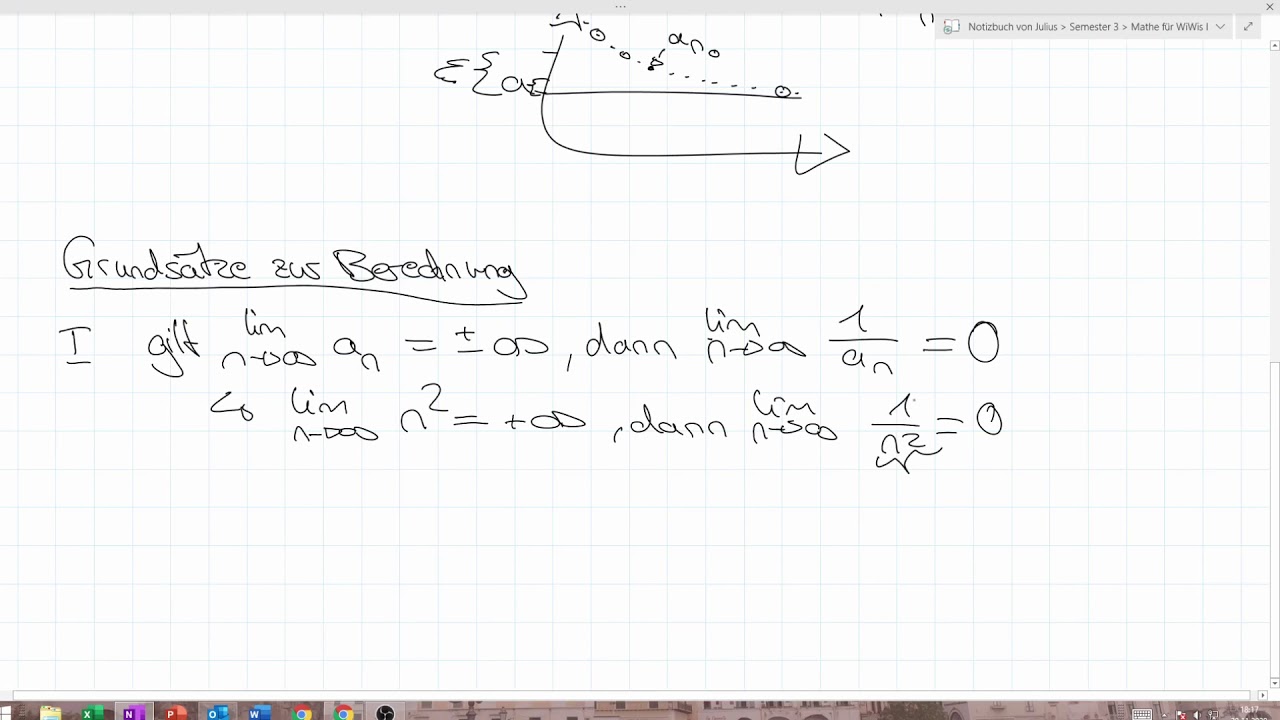 Notizbuch von Julius > Semester 3 > Mathe für WiWis I
a_{n_0}
ε{a
Grundsätze zur Berechnung
I gilt lim n→∞ a_n = ±∞, dann lim n→∞ 1/a_n = 0
↳ lim n→∞ n² = +∞, dann lim n→∞ 1/n² = 0
18:17